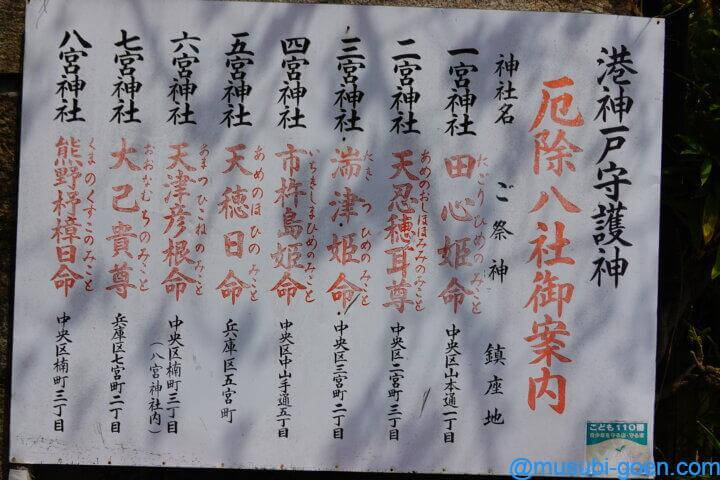 港神戸守護神
厄除八社御案内
神社名 ご祭神 鎮座地
一宮神社 田心姫命 たごりひめのみこと 中央区山本通一丁目
二宮神社 天忍穂耳尊 あめのおしほほみみのみこと 中央区二宮町三丁目
三宮神社・湍津・姫命・ たきつひめのみこと 中央区三宮町二丁目
四宮神社 市杵島姫命 いちきしまひめのみこと 中央区中山手通五丁目
五宮神社 天穂日命 あめのほひのみこと 兵庫区五宮町
六宮神社 天津彦根命 あまつひこねのみこと 中央区楠町三丁目
(八宮神社内)
七宮神社 大己貴尊 おおなむちのみこと 兵庫区七宮町二丁目
八宮神社 熊野杼樟日命 くまのくすこのみこと 中央区楠町三丁目
こども110番
@musubi-goen.com